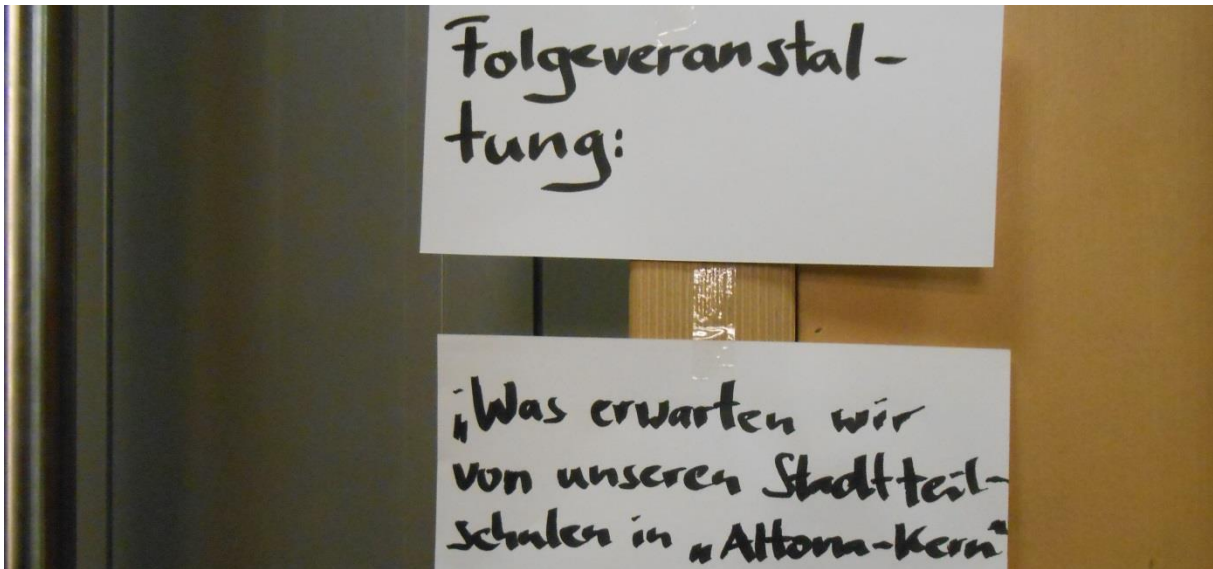 Folgeveranstal-
tung:
„Was erwarten wir
von unseren Stadtteil-
schulen in „Altona-Kern"